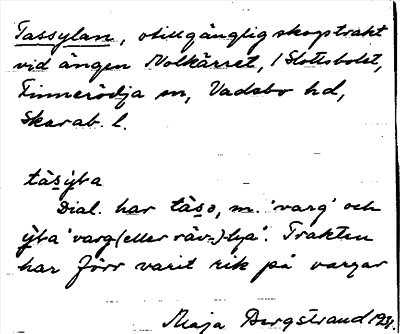 Tassylan, otillgänglig skogstrakt
vid ängen Nolkärret, / Slottsbolet,
Finnerödja sn, Vadsbo hd,
Skarab. l.
täsýta
Dial. har täsə, m. 'varg' och
ýta 'varg(eller räv-)lya'. Trakten
har förr varit rik på vargar
Maja Bergstrand 1921.